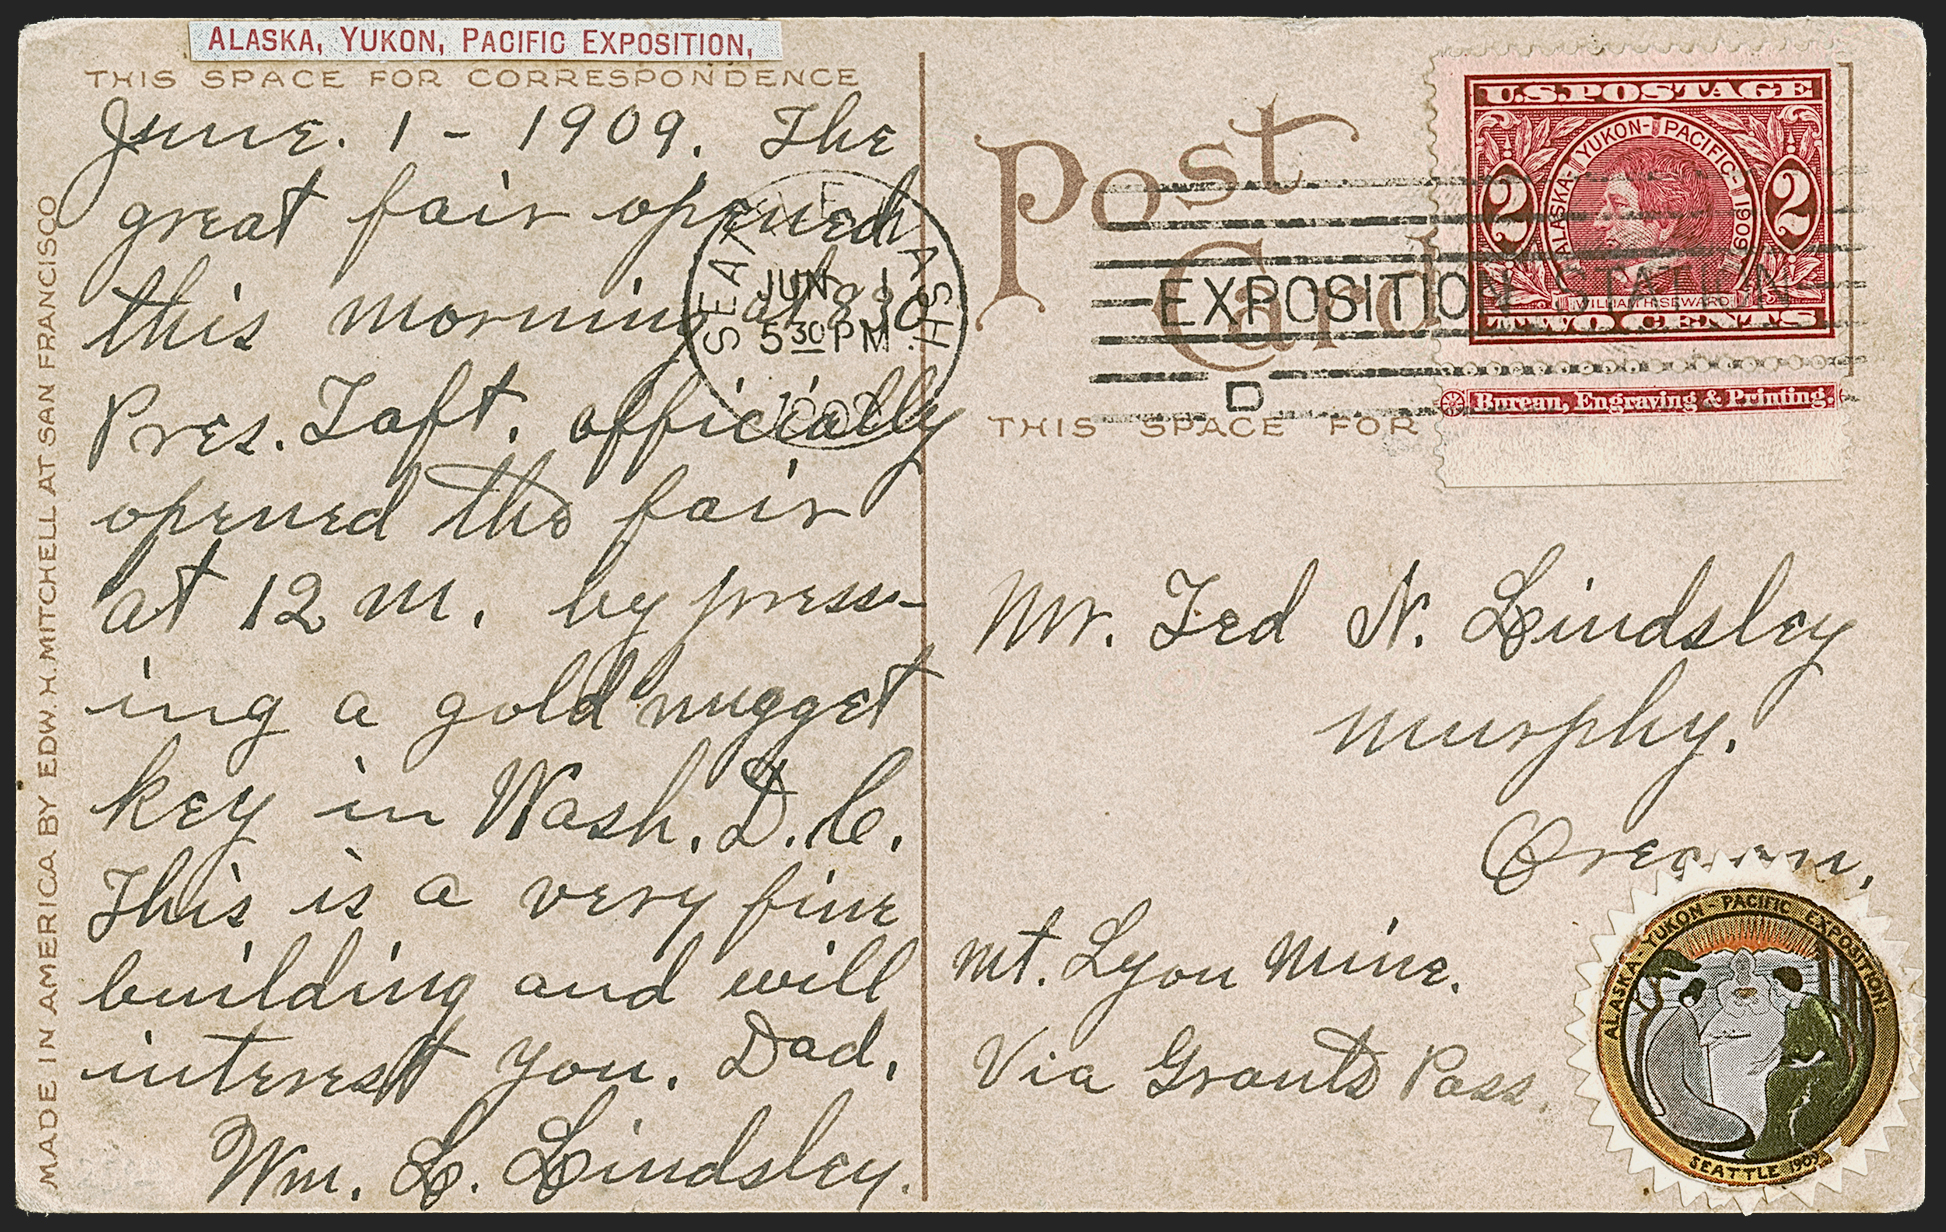 ALASKA, YUKON, PACIFIC EXPOSITION,
THIS SPACE FOR CORRESPONDENCE
June. 1 - 1909. The
great fair opened
this morning at 8 30
Pres. Taft. officially
opened the fair
at 12 m. by press-
ing a gold nugget
key in Wash. D.C.
This is a very fine
building and will
interest you. Dad.
Wm. L. Lindsley.
MADE IN AMERICA BY EDW. H. MITCHELL AT SAN FRANCISCO
SEATTLE WASH.
JUN 1
5 30 PM
1909
EXPOSITION STATION
D
Post
Card
THIS SPACE FOR
U.S. POSTAGE
ALASKA-YUKON-PACIFIC-1909
2 2
WILLIAM H. SEWARD
TWO CENTS
Bureau, Engraving & Printing.
Mr. Ted N. Lindsley
Murphy.
Oregon.
Mt. Lyon Mine.
Via Grants Pass.
ALASKA YUKON-PACIFIC EXPOSITION
SEATTLE 1909